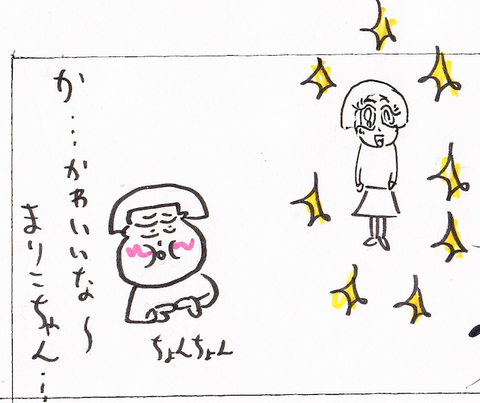 か…かわいいな～
まりこちゃん…
ちょんちょん